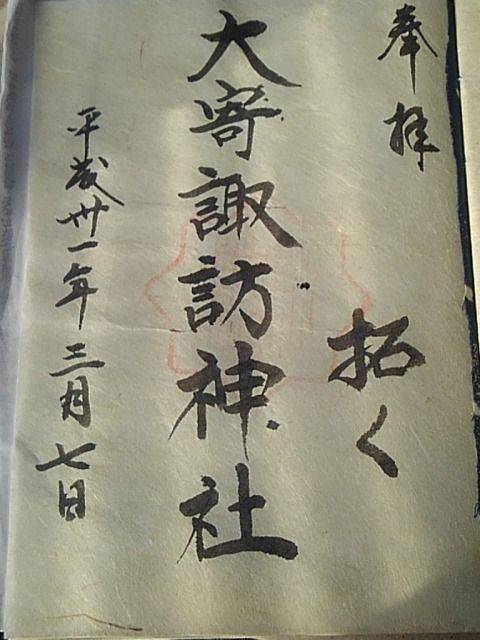 奉拝
拓く
大寄諏訪神社
平成卅一年三月七日